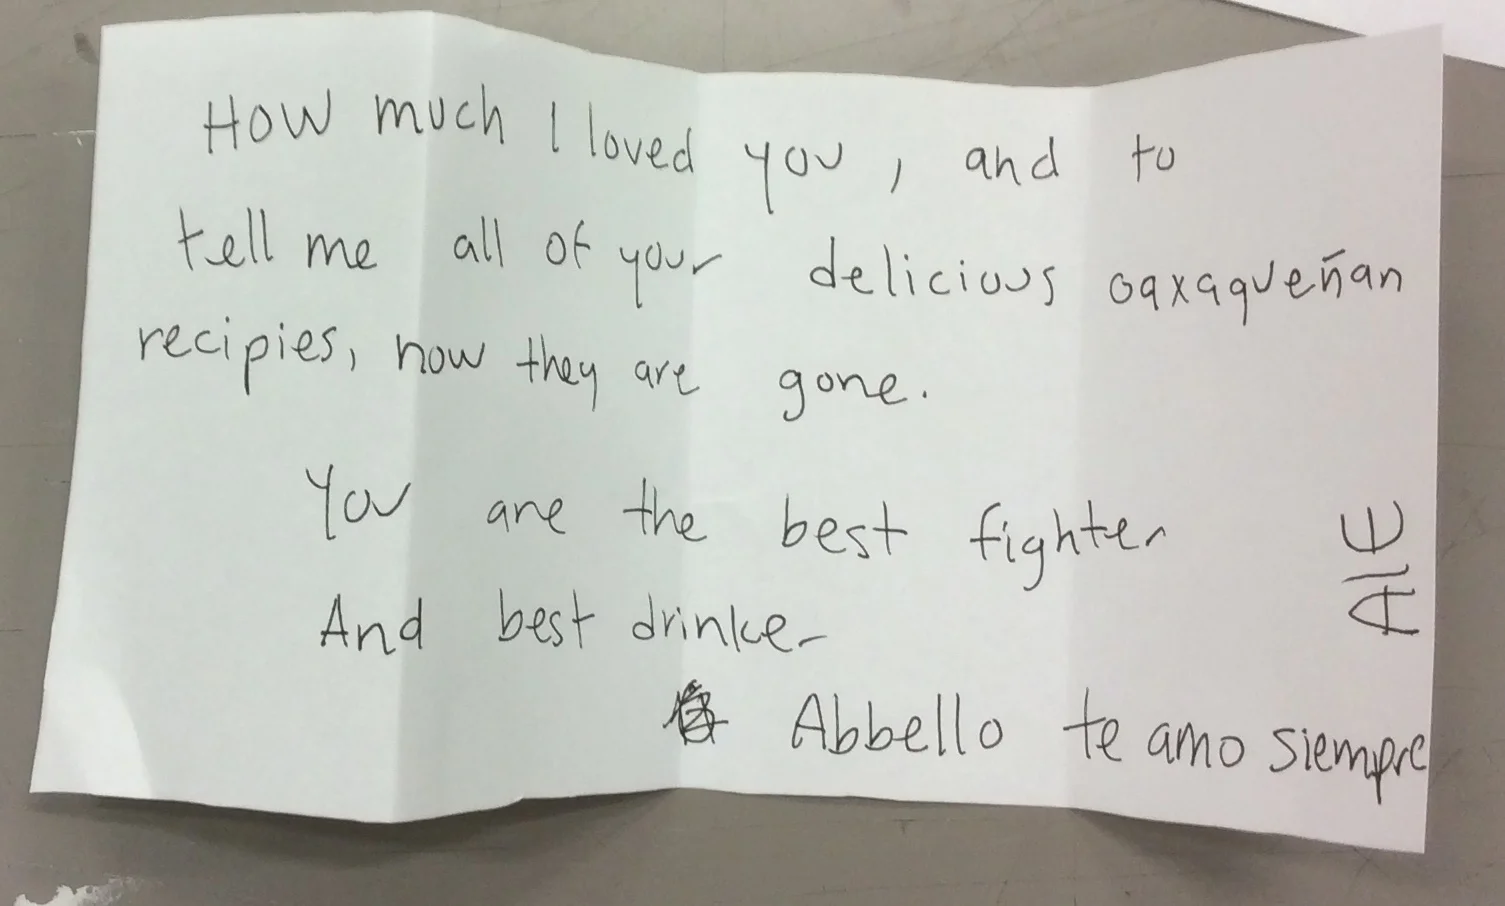 How much I loved you, and to
tell me all of your delicious oaxaqueñan
recipies, now they are gone.
You are the best fighter
And best drinker
Abbello te amo siempre